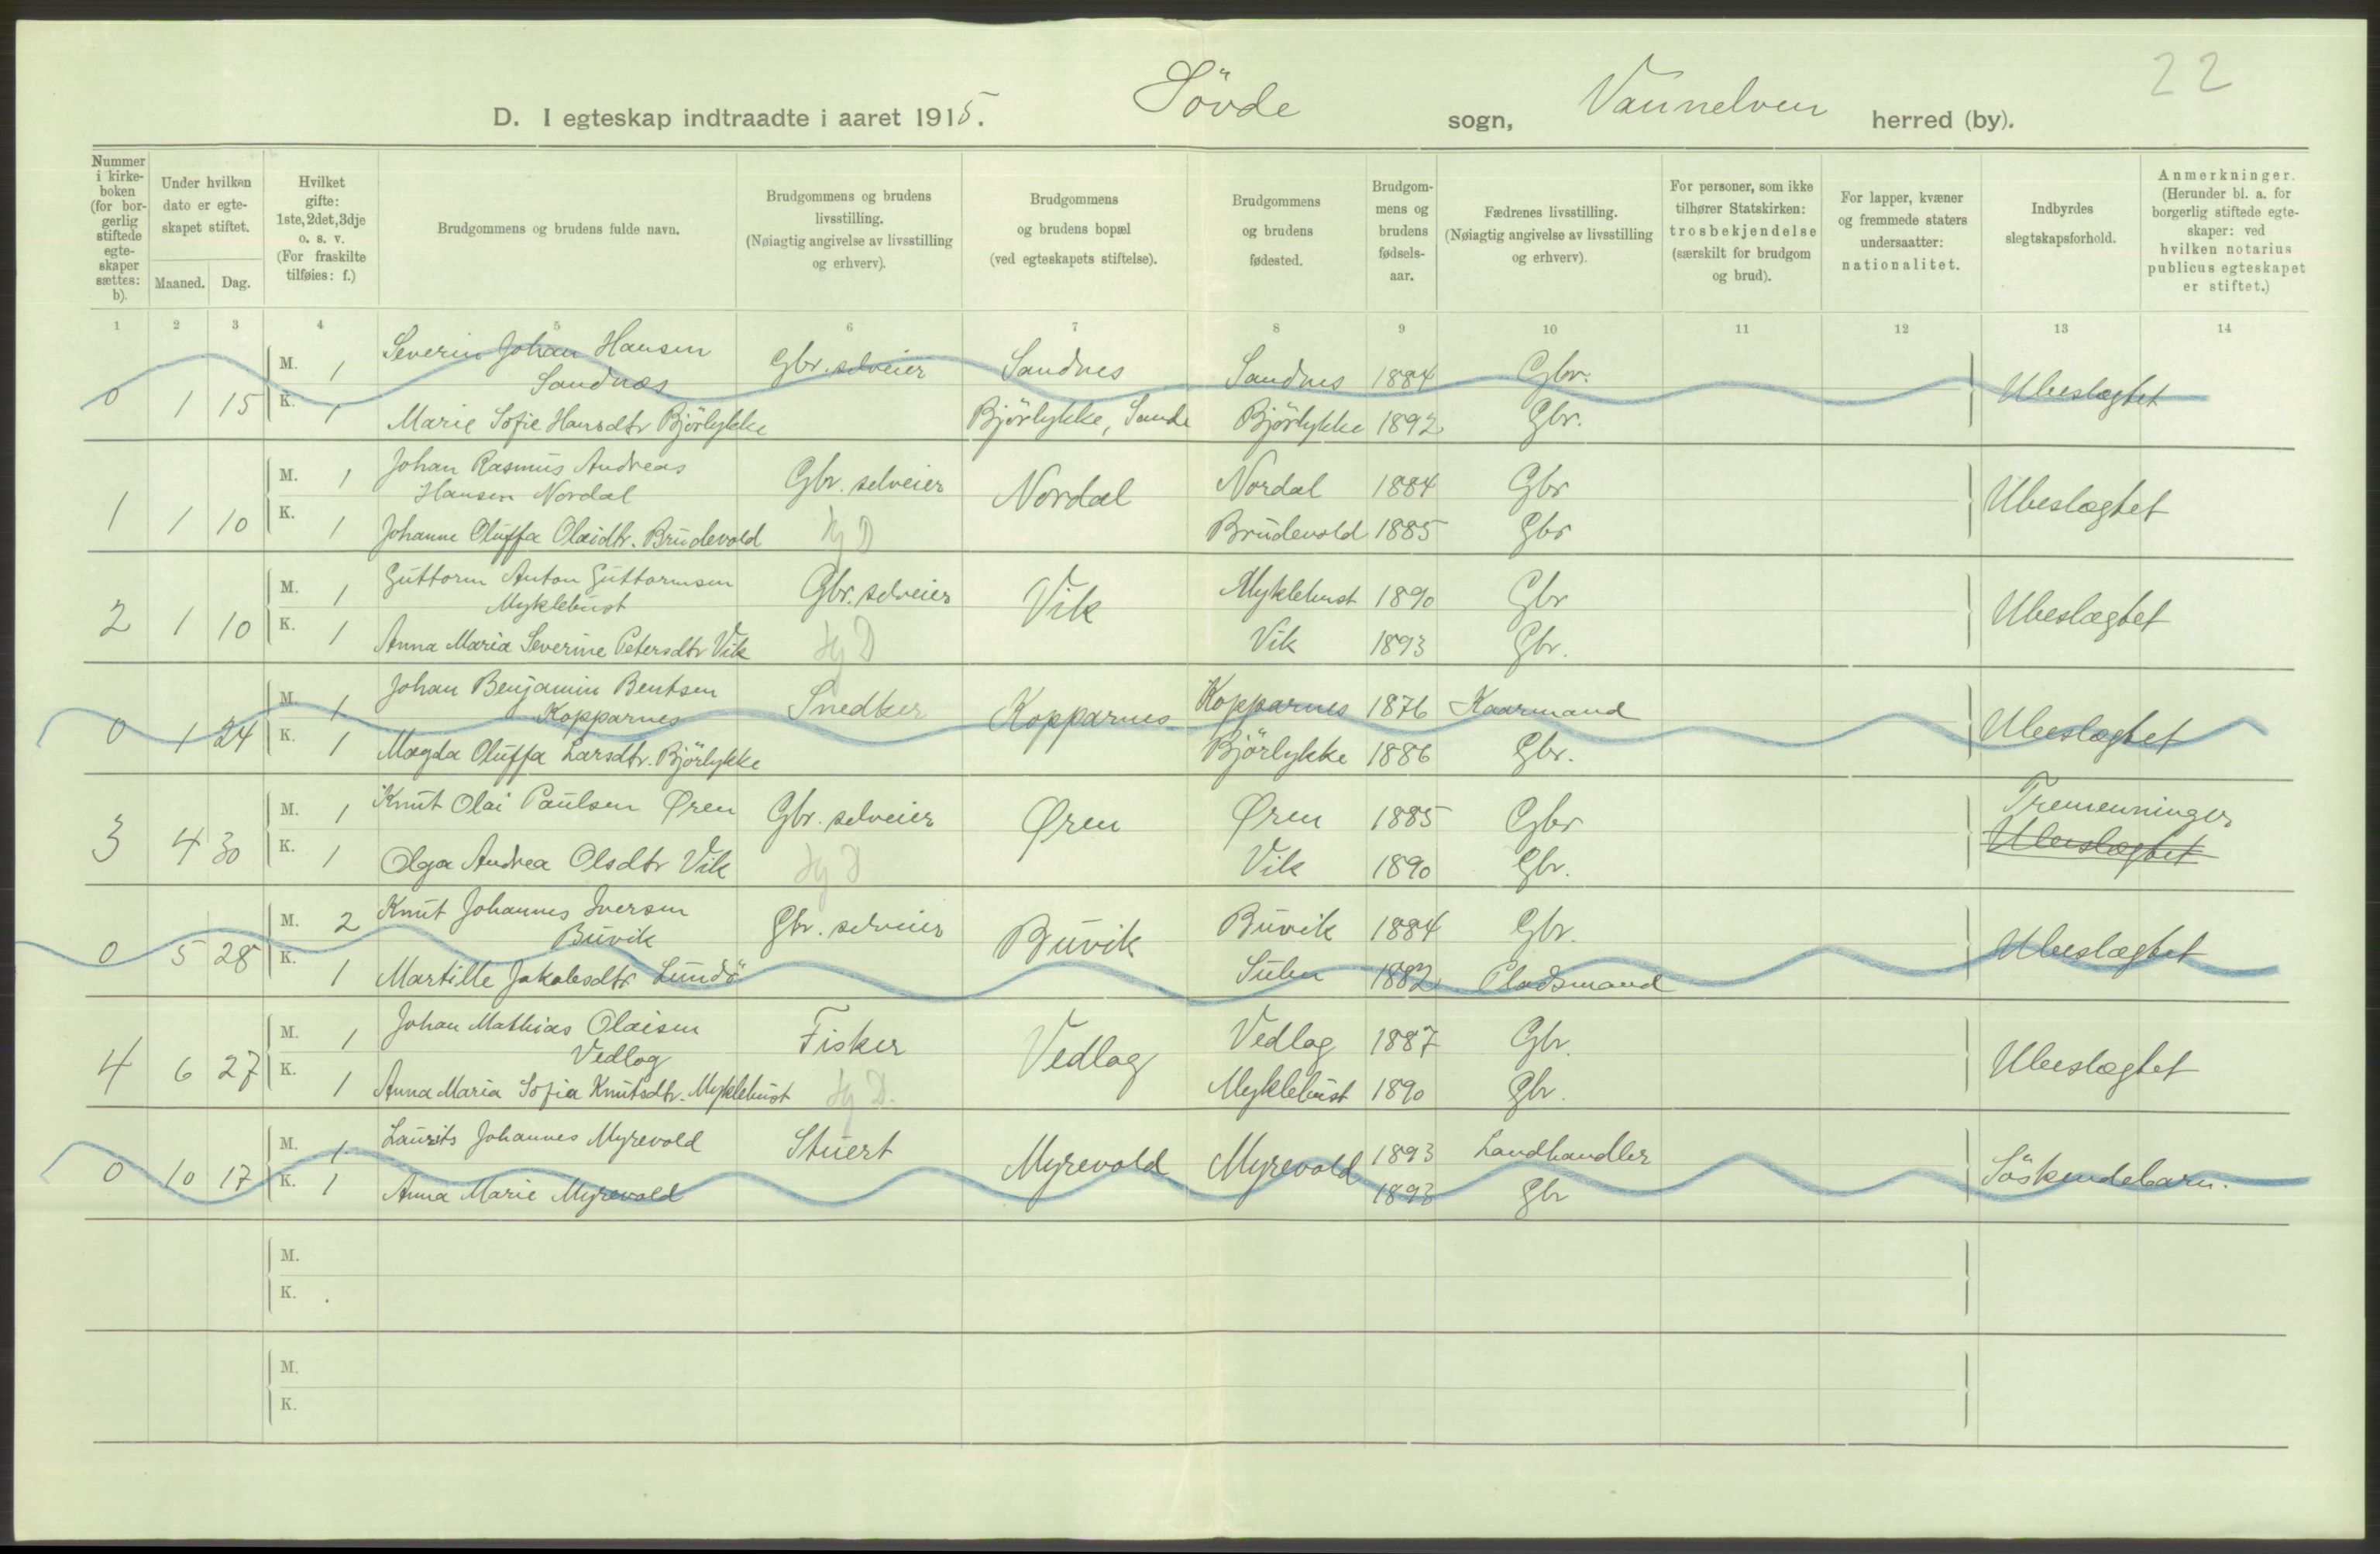 22
D. I egteskap indtraadte i aaret 1915. Sövde sogn, Vannelven herred (by).
Nummer i kirke-boken (for bor-gerlig stiftede egte-skaper sættes: b).
Under hvilken dato er egte-skapet stiftet.
Maaned. Dag.
Hvilket gifte: 1ste, 2det, 3dje o. s. v. (For fraskilte tilføies: f.)
Brudgommens og brudens fulde navn.
Brudgommens og brudens livsstilling. (Nøiagtig angivelse av livsstilling og erhverv).
Brudgommens og brudens bopæl (ved egteskapets stiftelse).
Brudgommens og brudens fødested.
Brudgom-mens og brudens fødsels-aar.
Fædrenes livsstilling. (Nøiagtig angivelse av livsstilling og erhverv).
For personer, som ikke tilhører Statskirken: trosbekjendelse (særskilt for brudgom og brud).
For lapper, kvæner og fremmede staters undersaatter: nationalitet.
Indbyrdes slegtskapsforhold.
Anmerkninger. (Herunder bl. a. for borgerlig stiftede egte-skaper: ved hvilken notarius publicus egteskapet er stiftet.)
1 2 3 4 5 6 7 8 9 10 11 12 13 14
M. 1 Severin Johan Hansen Sandnæs Gbr. selveier Sandnes Sandnes 1884 Gbr.
0 1 15 Ubeslægtet
K. 1 Marie Sofie Hansdtr Bjørlykke Bjørlykke, Sande Bjørlykke 1892 Gbr.
M. 1 Johan Rasmus Andreas Hansen Nordal Gbr. selveier Nordal Nordal 1884 Gbr
1 1 10 Ubeslægtet
K. 1 Johanne Oluffa Olaidtr. Brudevold Hj D Brudevold 1885 Gbr
M. 1 Guttorm Anton Guttormsen Myklebust Gbr. selveier Vik Myklebust 1890 Gbr
2 1 10 Ubeslægtet
K. 1 Anna Maria Severine Petersdtr Vik Hj D Vik 1893 Gbr.
M. 1 Johan Benjamin Bentsen Kopparnes Snedker Kopparnes Kopparnes 1876 Kaarmand
0 1 24 Ubeslægtet
K. 1 Magda Oluffa Larsdtr. Bjørlykke Bjørlykke 1886 Gbr.
M. 1 Knut Olai Paulsen Øren Gbr. selveier Øren Øren 1885 Gbr Tremenninger
3 4 30 Ubeslægtet
K. 1 Olga Andrea Olsdtr Vik Hj D Vik 1890 Gbr.
M. 2 Knut Johannes Iversen Buvik Gbr. selveier Buvik Buvik 1884 Gbr.
0 5 28 Ubeslægtet
K. 1 Martille Jakobsdtr Lundö Sulen 1882 Pladsmand
M. 1 Johan Mathias Olaisen Vedlog Fisker Vedlag Vedlag 1887 Gbr.
4 6 27 Ubeslægtet
K. 1 Anna Maria Sofia Knutsdtr. Myklebust Hj D. Myklebust 1890 Gbr.
M. 1 Laurits Johannes Myrevold Stuert Myrevold Myrevold 1893 Landhandler
0 10 17 Söskendebarn.
K. 1 Anna Marie Myrevold 1893 Gbr
M.
K.
M.
K.